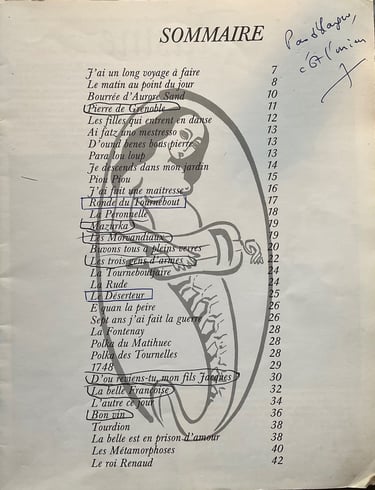 SOMMAIRE
J'ai un long voyage à faire 7
Le matin au point du jour 8
Bourrée d'Aurore Sand 10
Pierre de Grenoble 11
Les filles qui entrent en danse 12
Ai fatz ano mestresso 13
D'ound benes bous pierre 13
Para lou loup 13
Je descends dans mon jardin 14
Piou Piou 15
J'ai fait une maitresse 16
Ronde du Tournebout 17
La Péronnelle 18
Mazurka 19
Les Morvandiaux 19
Buvons tous à pleins verres 20
Les trois gens d'armes 22
La Tourneboutjaire 24
La Rude 24
Le Déserteur 25
E quan la peire 26
Sept ans j'ai fait la guerre 26
La Fontenay 28
Polka du Matihuec 28
Polka des Tournelles 28
1748 29
D'ou reviens-tu, mon fils Jacques 30
La belle Françoise 32
L'autre ce jour 34
Bon vin 36
Tourdion 38
La belle est en prison d'amour 38
Les Métamorphoses 40
Le roi Renaud 42